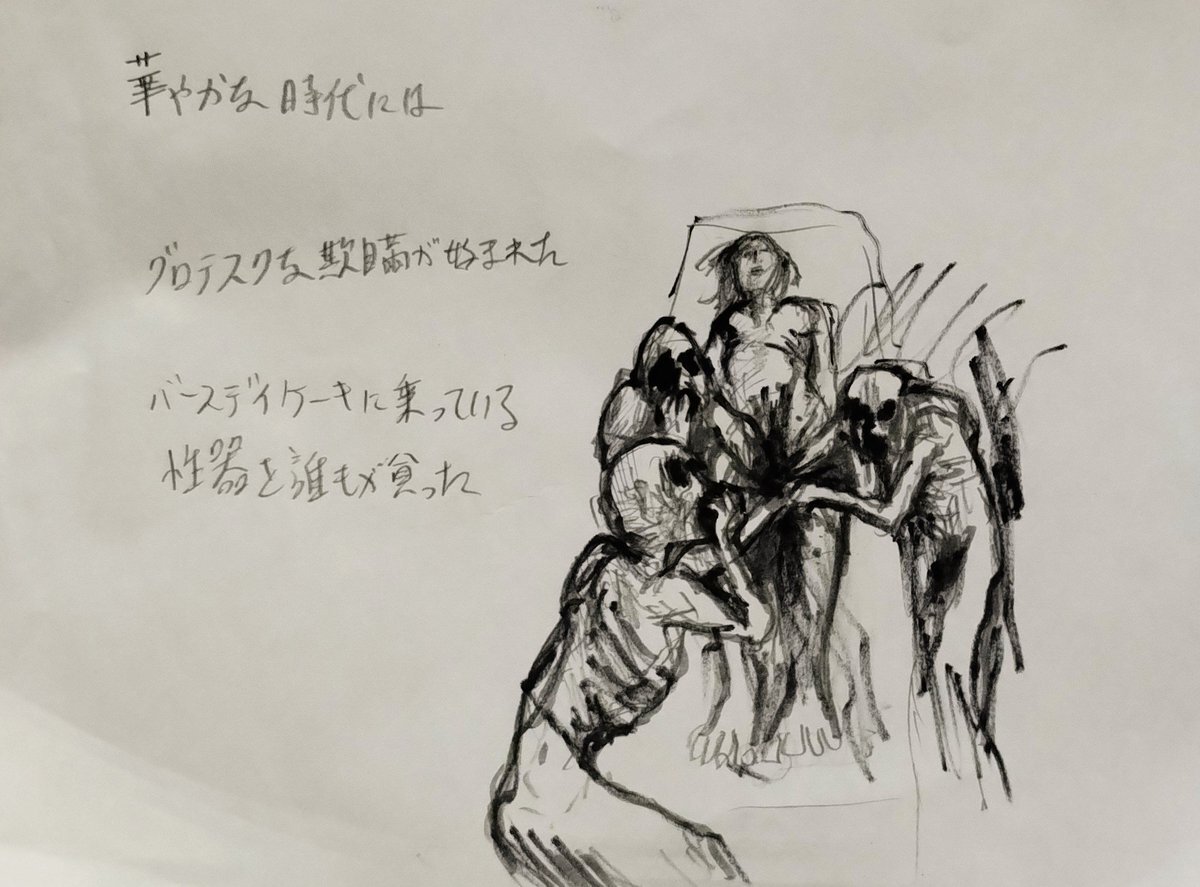 華やかな時代には
グロテスクな欺瞞が始まれた
バースデイケーキに乗っている
性器を誰もが貪った